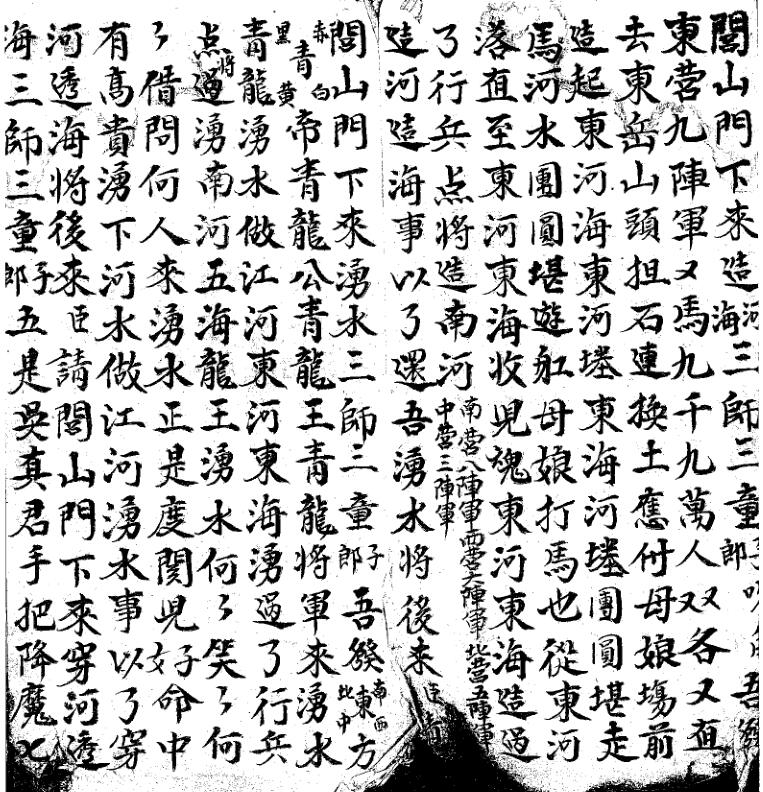 閭山門下來造河海三師三童子郎吾發
東營九陣軍又馬九千九萬人双各又直
去東岳山頭担石連換土應付母娘塲前
造起東河海東河墘東海河墘團圓堪走
馬河水團圓堪遊舡母娘打馬也從東河
落直至東河東海收児魂東河東海造過
了行兵点將造南河南營八陣軍西營六陣軍北營五陣軍中營三陣軍
造河造海事以了還吾湧水將後來臣請
閭山門下來湧水三師三童子郎吾發東南西北中方
青赤白黒黄帝青龍公青龍王青龍將軍來湧水
青龍湧水做江河東河東海湧過了行兵
点將過湧南河五海龍王湧水何〻笑〻何
〻借問何人來湧水正是度関児好子命中
有高貴湧下河水做江河湧水事以了穿
河透海將後來臣請閭山門下來穿河透
海三師三童子郎五是吳真君手把降魔七